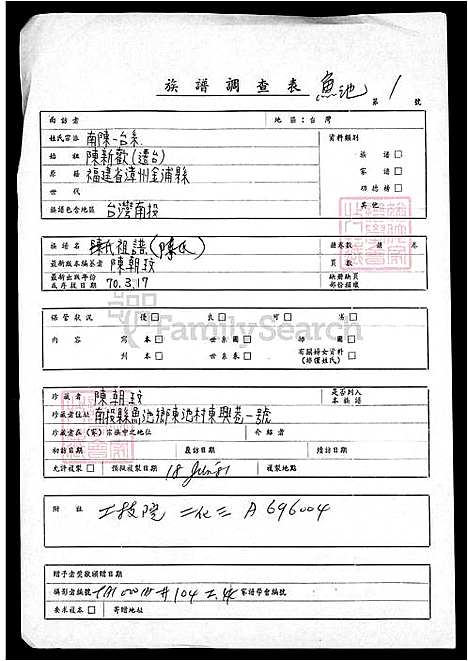 族譜調查表 魚池 第 1 號
面訪者 地區：台灣
姓氏宗派 南陳-台系 資料類別
始祖 陳新歡(遷台) 族譜 □
原籍 福建省漳州金浦縣 家譜 □
世代 功德榜 □
族譜包含地區 台灣南投 其他
族譜名 陳氏祖譜(陳氏) 總卷數 總 卷
最新版本編纂者 陳朝玟 頁數
最新出版年份或存放日期 70.3.17 缺冊缺頁部份損壞
保管狀況 優 □ 良 □ 可 □ 劣 □
內容 寫本 □ 世系圖 □ 師圖 □
刊本 □ 世系表 □ 有關婦女資料(排僅姓氏) □
珍藏者 陳朝玟 是否列入本族譜
珍藏者住址 南投縣魚池鄉東池村東興巷一號
珍藏者在(家)宗族中之地位 介紹者
初訪日期 覆訪日期 續訪日期
允許複製 □ 預擬複製日期 18 Jun 81 複製地點
附註 工技院 二化三 A696004
贈予者獎狀頒贈日期
攝影者編號 #104 家譜學會編號
要求複本 □ 寄贈地址
FamilySearch